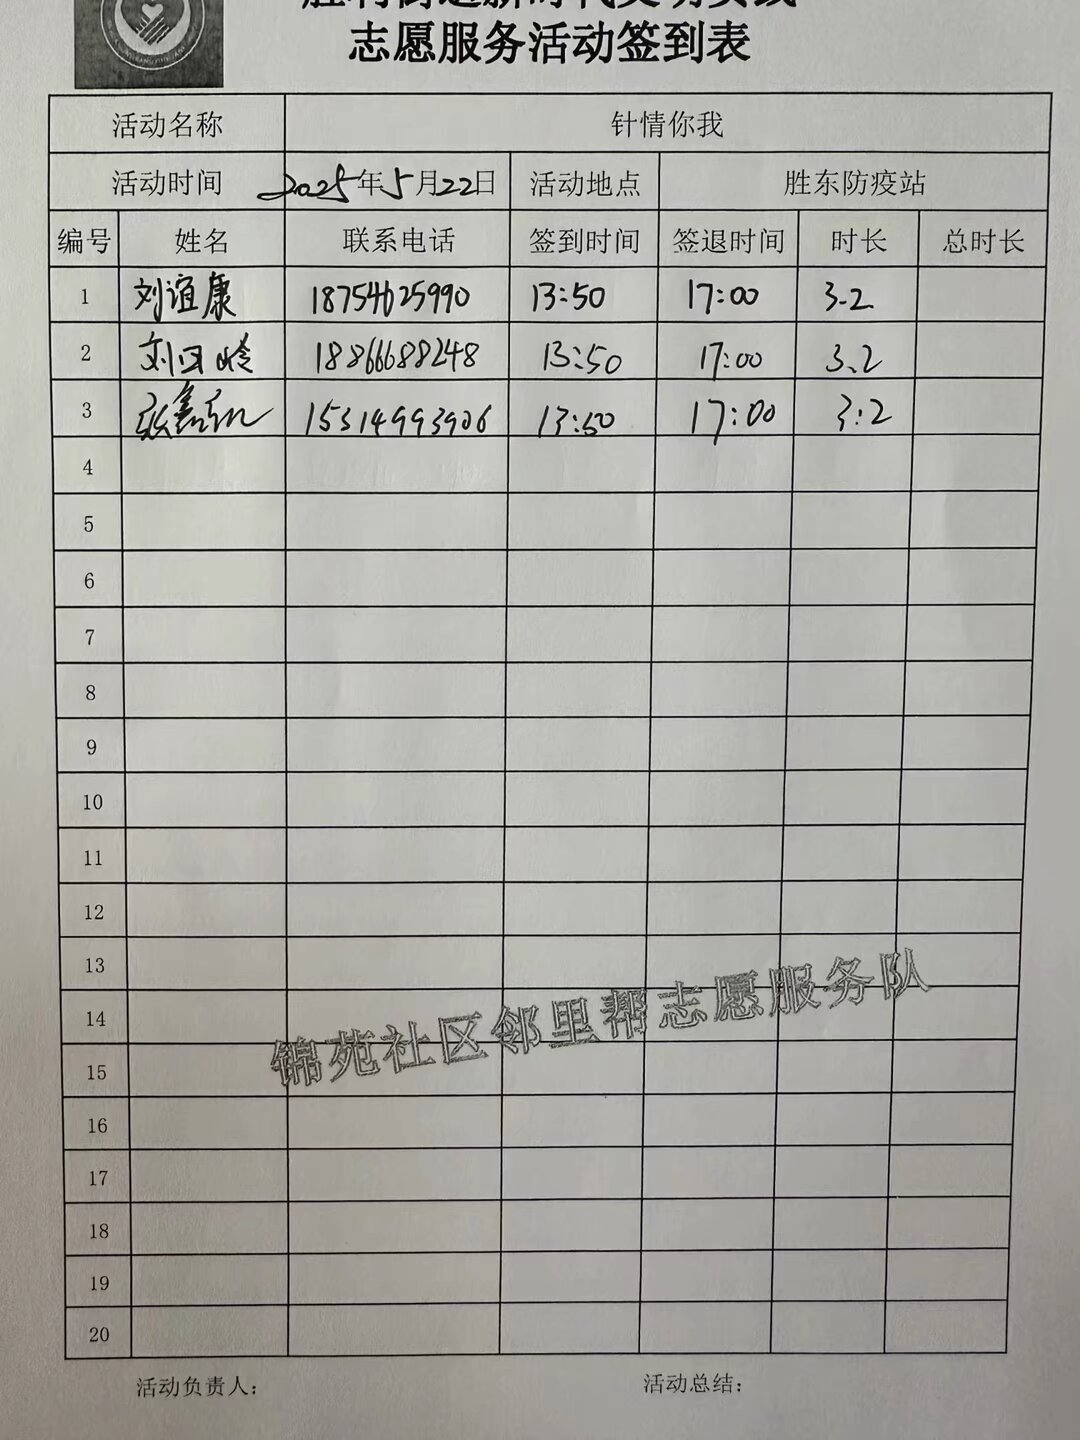 志愿服务活动签到表
活动名称 针情你我
活动时间 2025年5月22日 活动地点 胜东防疫站
编号 姓名 联系电话 签到时间 签退时间 时长 总时长
1 刘谊康 18754625990 13:50 17:00 3.2
2 刘 18866688248 13:50 17:00 3.2
3 张鑫 15314993906 13:50 17:00 3:2
4
5
6
7
8
9
10
11
12
13
14
15
16
17
18
19
20
锦苑社区邻里帮志愿服务队
活动负责人： 活动总结：